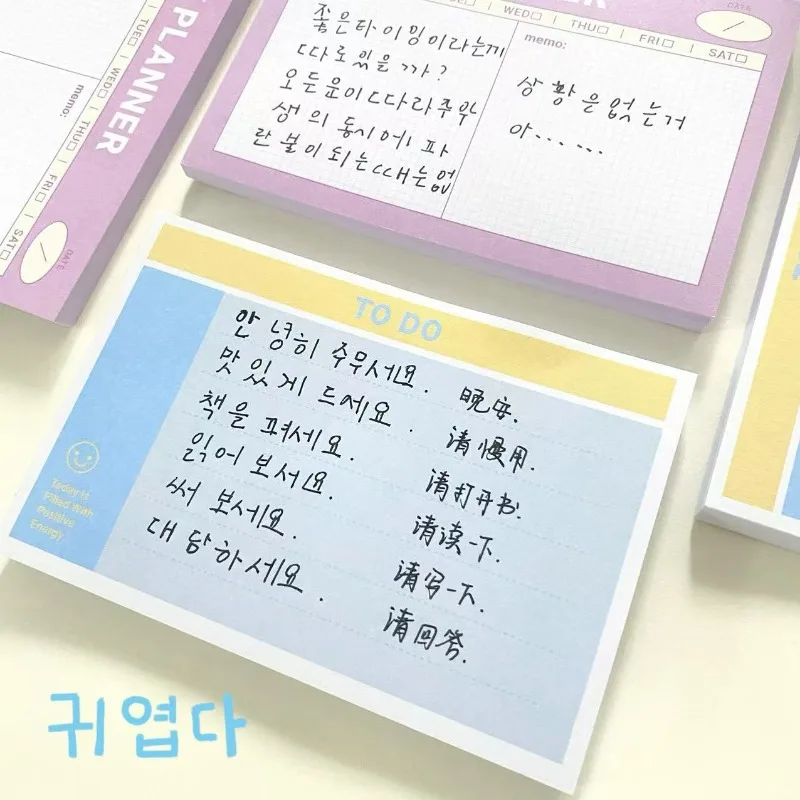 PLANNER
TUE
WED
THU
FRI
SAT
memo:
DATE
WED
THU
FRI
SAT
DATE
좋은타이밍이라는게
따로있을까?
모든운이따라주악
생의동시에파
란불이되는때는없
memo:
상황은없는거
아......
TO DO
안녕히 주무서요. 晚安.
맛있게 드세요. 请慢用.
책을 펴세요. 请打开书.
읽어 보서요. 请读一下.
써 보세요. 请写一下.
대답하세요. 请回答.
Today Is
Filled With
Positive
Energy
귀엽다